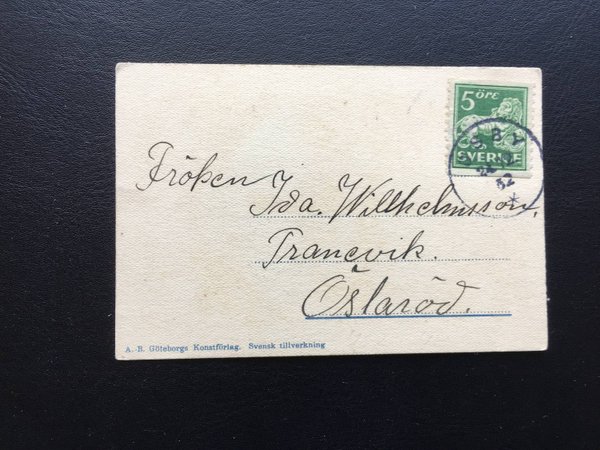 5 ÖRE
SVERIGE
SBY
22 12
32
Fröken Ida. Willhelmsson.
Tranevik.
Östaröd.
A.-B. Göteborgs Konstförlag. Svensk tillverkning